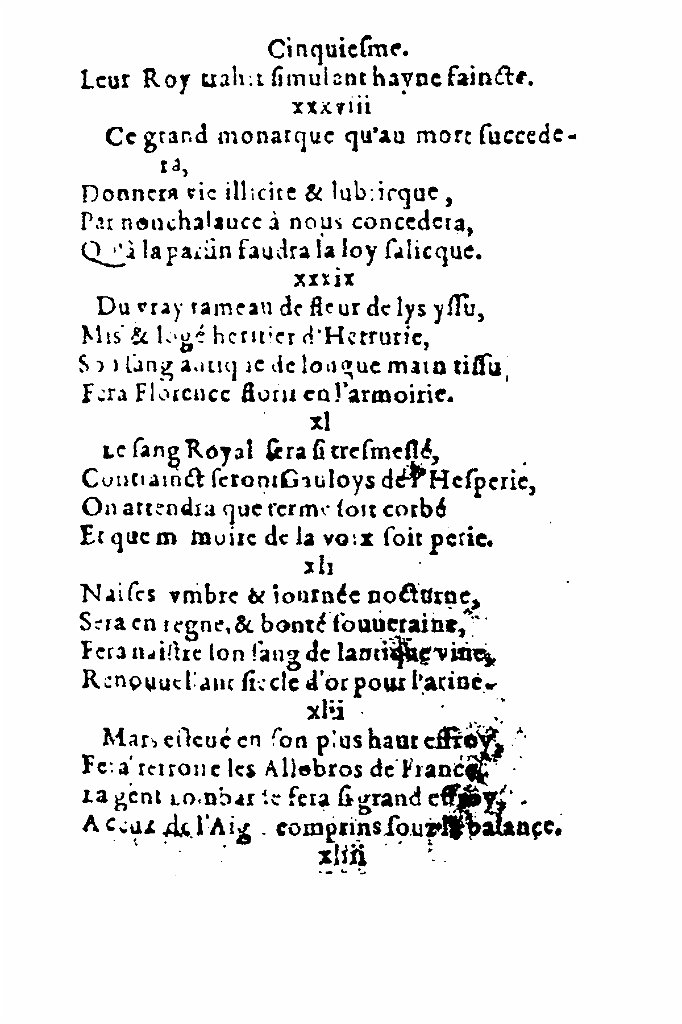 Cinquiesme.
Leur Roy trahit simulant hayne faincte.
xxxviii
Ce grand monarque qu'au mort succede-
ra,
Donnera vie illicite & lubricque,
Par nonchalauce à nous concedera,
Qu'à la parfin faudra la loy salicque.
xxxix
Du vray rameau de fleur de lys yssu,
Mis & logé heritier d'Hetrurie,
Son sang antique de longue main tissu,
Fera Florence florir en l'armoirie.
xl
Le sang Royal sera si tresmeslé,
Contrainct seront Gauloys de l'Hesperie,
On attendra que terme soit corbé
Et que memoire de la voix soit perie.
xli
Naises vmbre & iournée nocturne,
Sera en regne, & bonté souueraine,
Fera naistre son sang de lantique vine,
Renouuellant siecle d'or pour l'arine.
xlii
Mars esleué en son plus haut effroy,
Fera retroue les Allobros de France,
La gent Lombarde fera si grand effroy,
A ceux de l'Aig comprins sour balance.
xliii